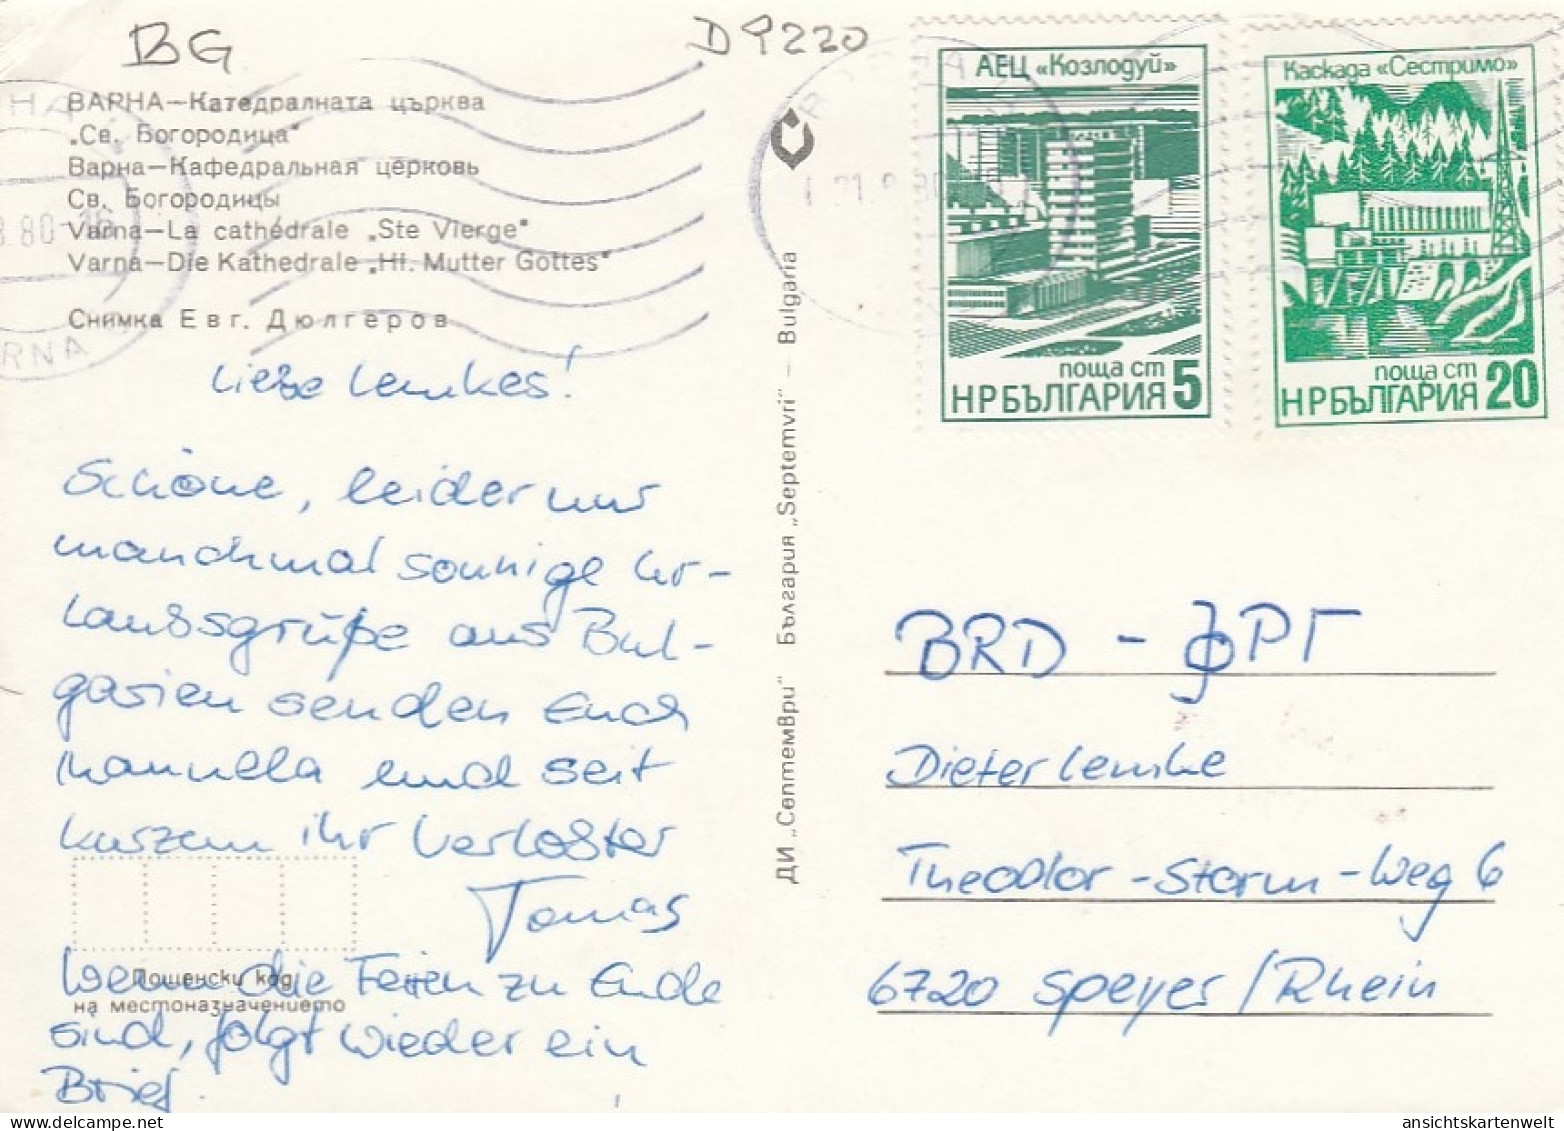 BG
D 9220
ВАРНА—Катедралната църква
„Св. Богородица“
Варна—Кафедральная церковь
Св. Богородицы
Varna—La cathédrale „Ste Vierge“
Varna—Die Kathedrale „Hl. Mutter Gottes“
Снимка Евг. Дюлгеров
Liebe Lemkes!
Schöne, leider nur
manchmal sonnige Ur-
laubsgrüße aus Bul-
garien senden Euch
Manuela und seit
kurzem ihr Verlobter
Tomas
Wenn die Ferien zu Ende
sind, folgt wieder ein
Brief.
Пощенски код
на местоназначението
ДИ „Септември“ България „Septemvri“ — Bulgaria
АЕЦ «Козлодуй»
поща ст 5
НРБЪЛГАРИЯ
Каскада «Сестримо»
поща ст 20
НРБЪЛГАРИЯ
BRD - ФРГ
Dieter Lemke
Theodor-Storm-Weg 6
6720 Speyer/Rhein
ansichtskartenwelt